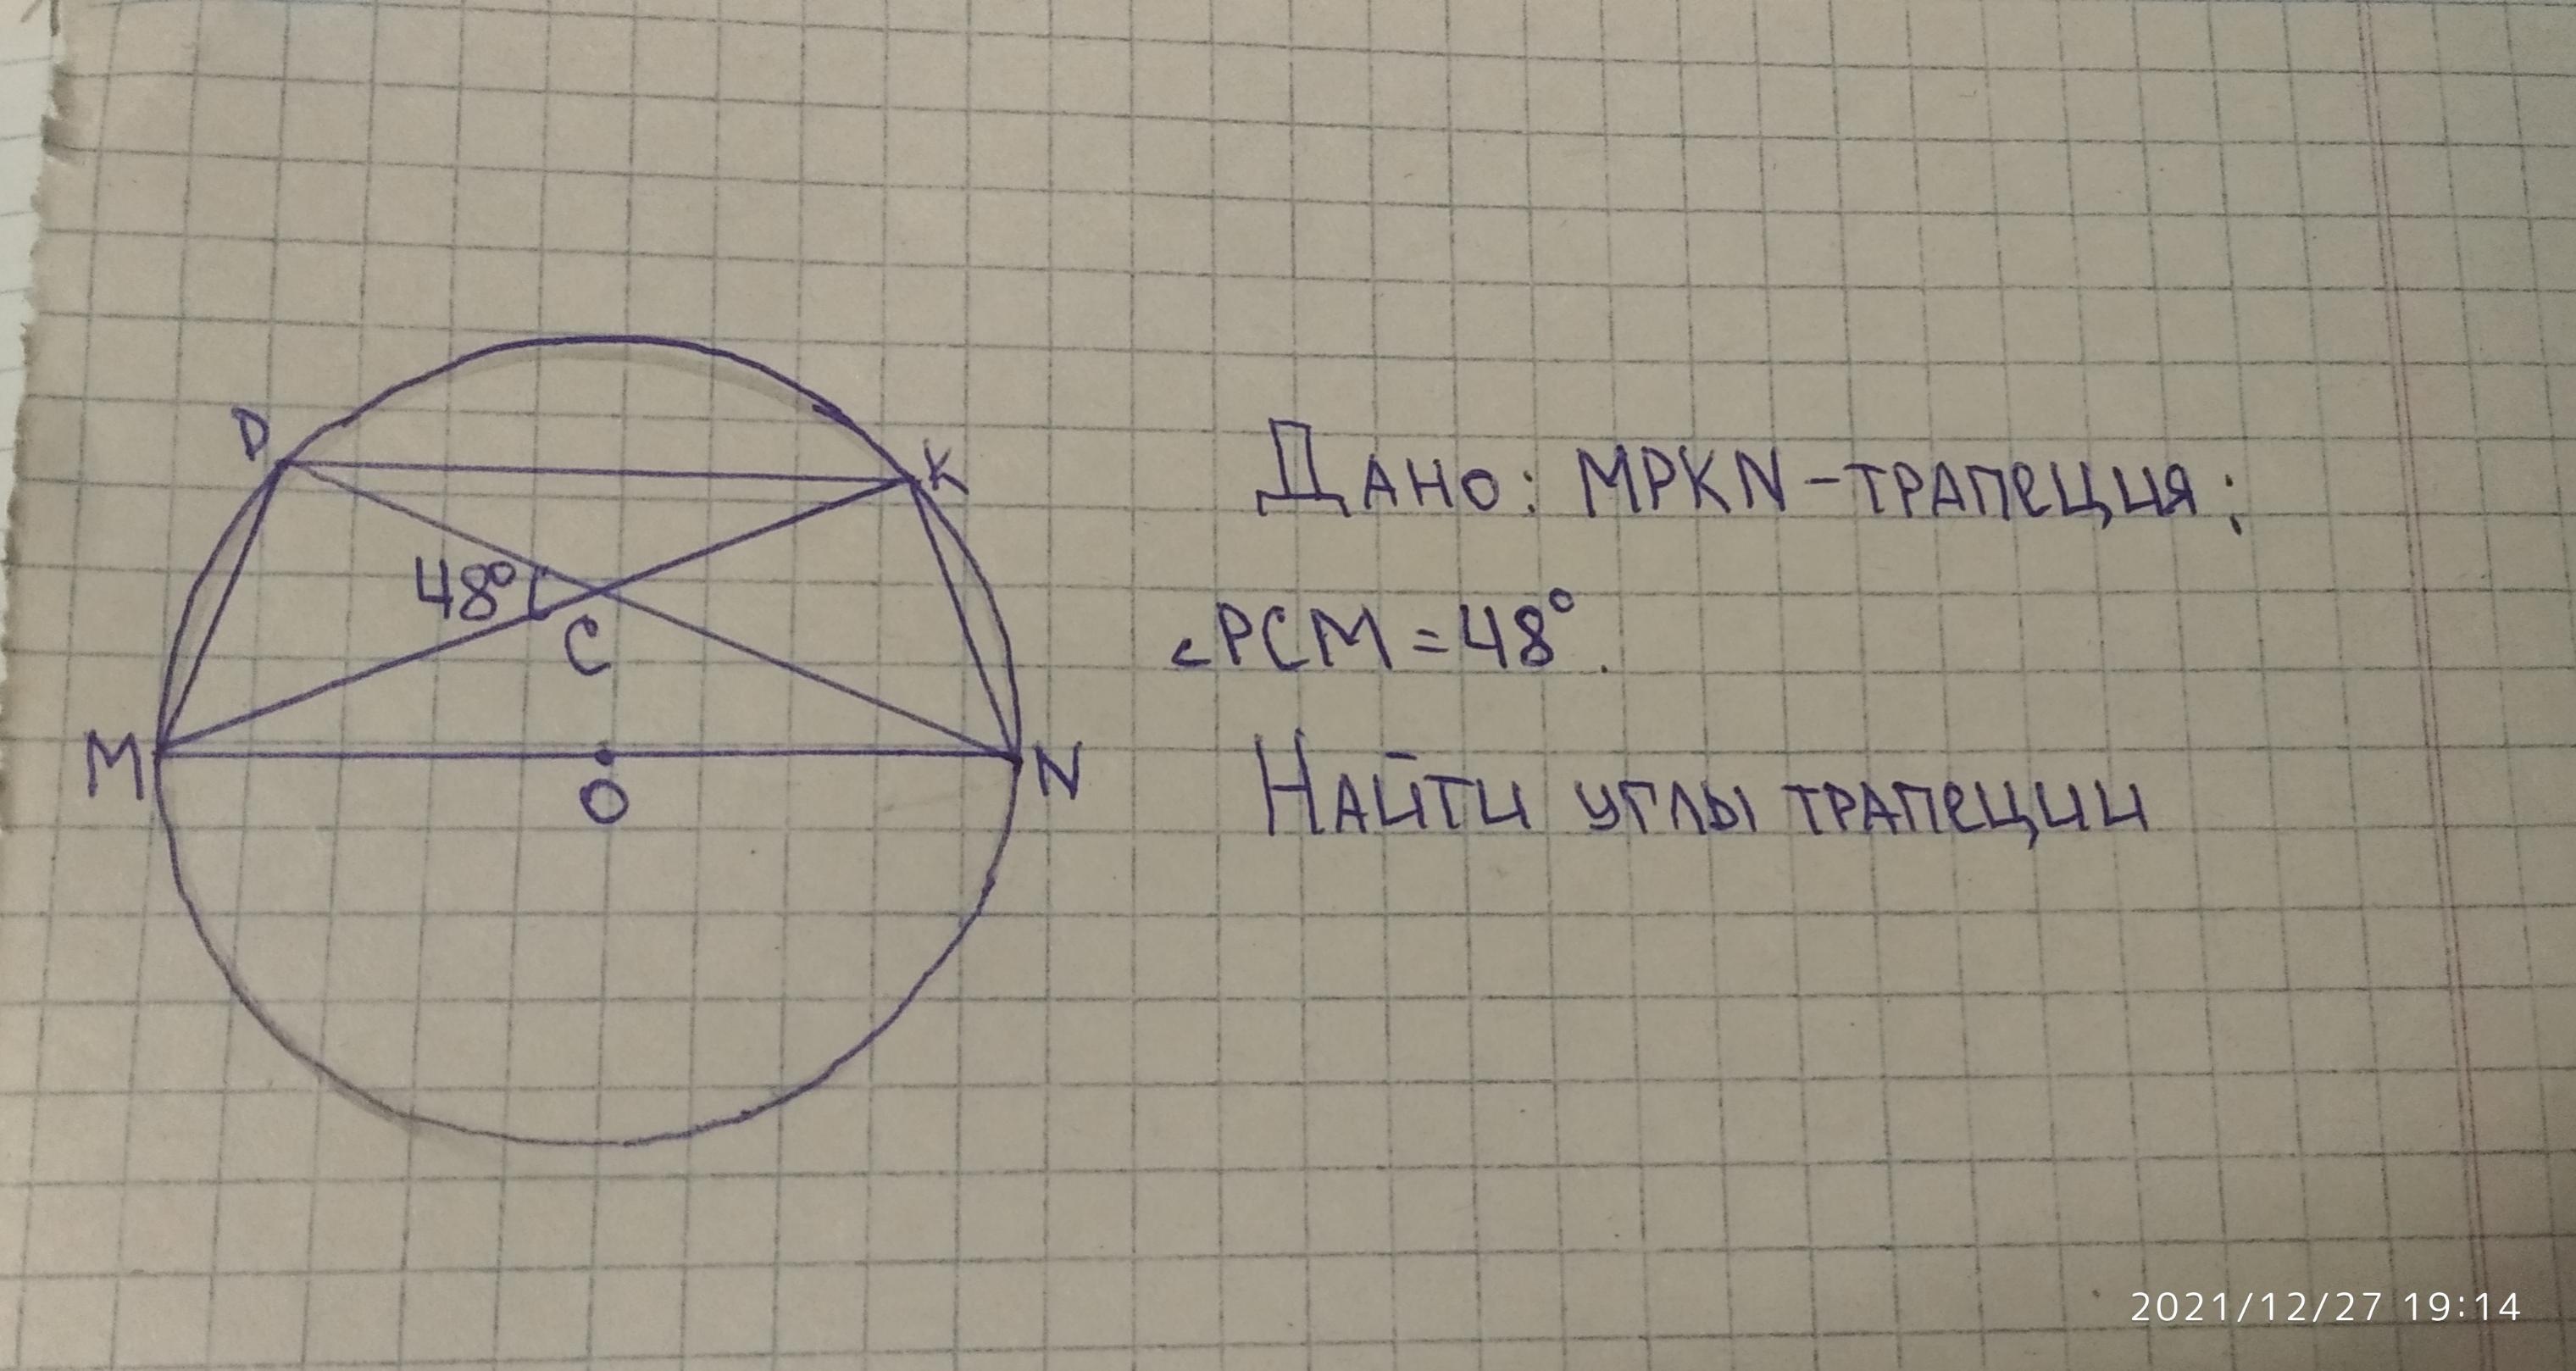 P
K
Дано: MPKN - трапеция;
48°
C
∠PCM = 48°.
M
O
N
Найти углы трапеции
2021/12/27 19:14